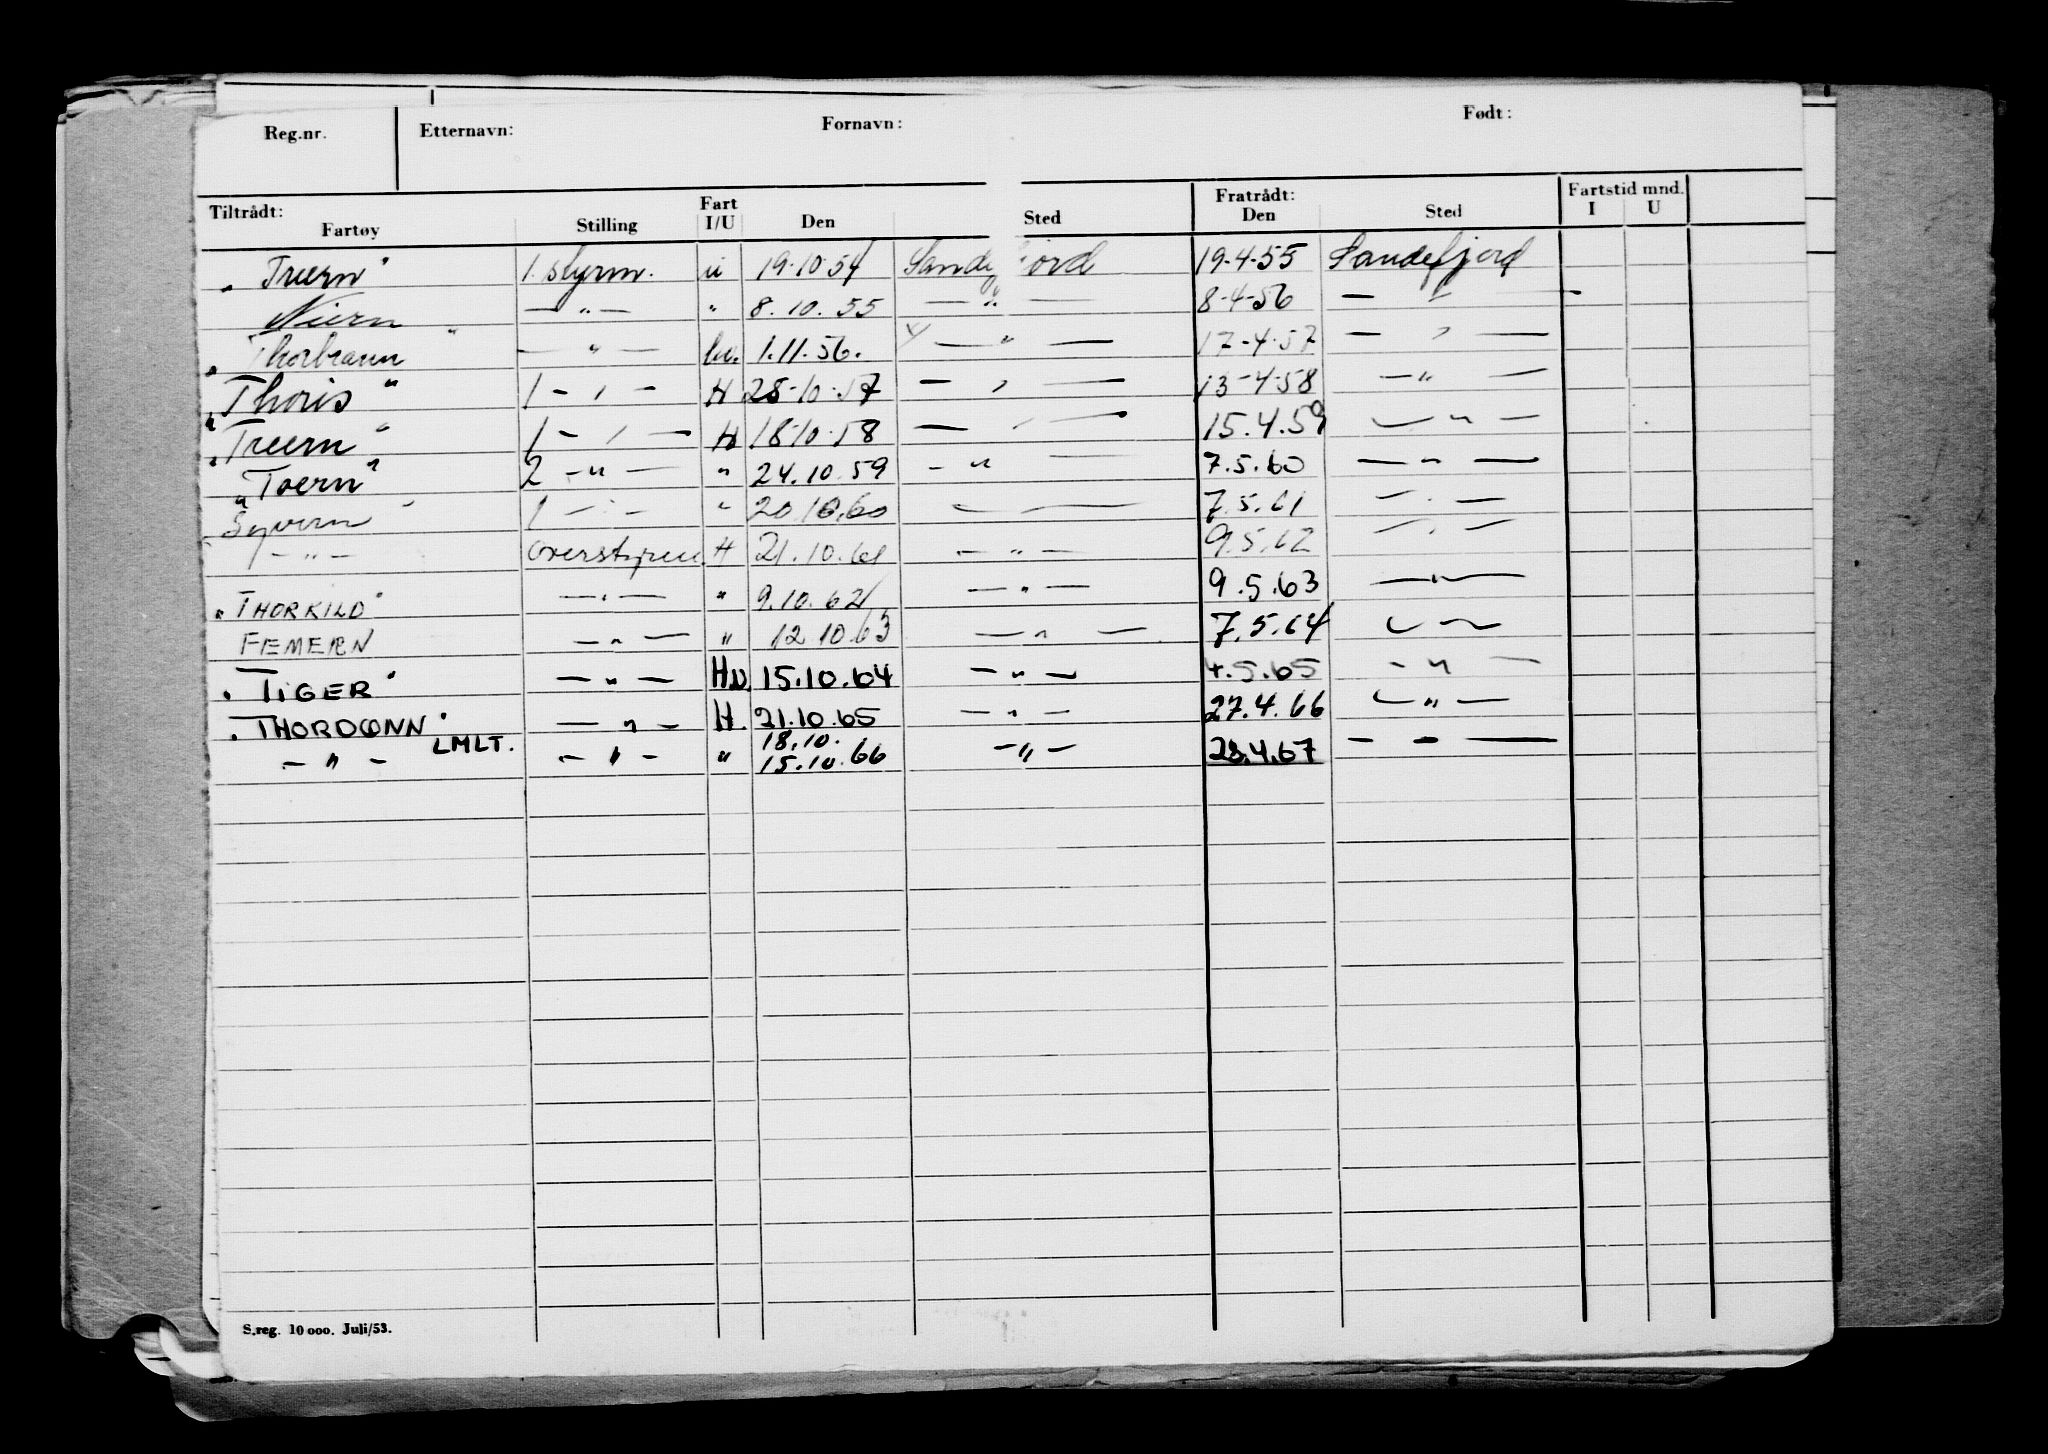 Reg.nr. Etternavn: Fornavn: Født:
Tiltrådt: Fart Fratrådt: Fartstid mnd.
Fartøy Stilling I/U Den Sted Den Sted I U
„ Truern" 1. styrm. u 19.10.54 Sandefjord 19-4-55 Sandefjord
Niern — " — " 8.10.55 — " — 8-4-56 — " —
„ Thorbrann " — " — hv. 1.11.56. — " — 17-4-57 — " —
„ Thoris " 1 - " - H 28-10-57 — " — 13-4-58 — " —
„ Truern " 1 - " — H 18-10-58 — " — 15.4.59 — " —
„ Toern " 2 - " — " 24.10.59 - " — 7.5.60 — " —
Syvern " 1 - " - " 20.10.60 — " — 7.5.61 — " —
- " - overstyrm. H 21.10.61 — " — 9.5.62 — " —
„ THORKILD" — " — " 9.10.62 — " — 9.5.63 — " —
FEMERN — " — " 12.10.63 — " — 7.5.64 — " —
„ TIGER" — " — Hv. 15.10.64 — " — 4.5.65 - " —
„ THORDØNN" — " - H. 21.10.65 — " — 27.4.66 — " —
- " - LMLT. - " - " 18.10. 15.10.66 - " - 28.4.67 — " —
S.reg. 10 000. Juli/53.